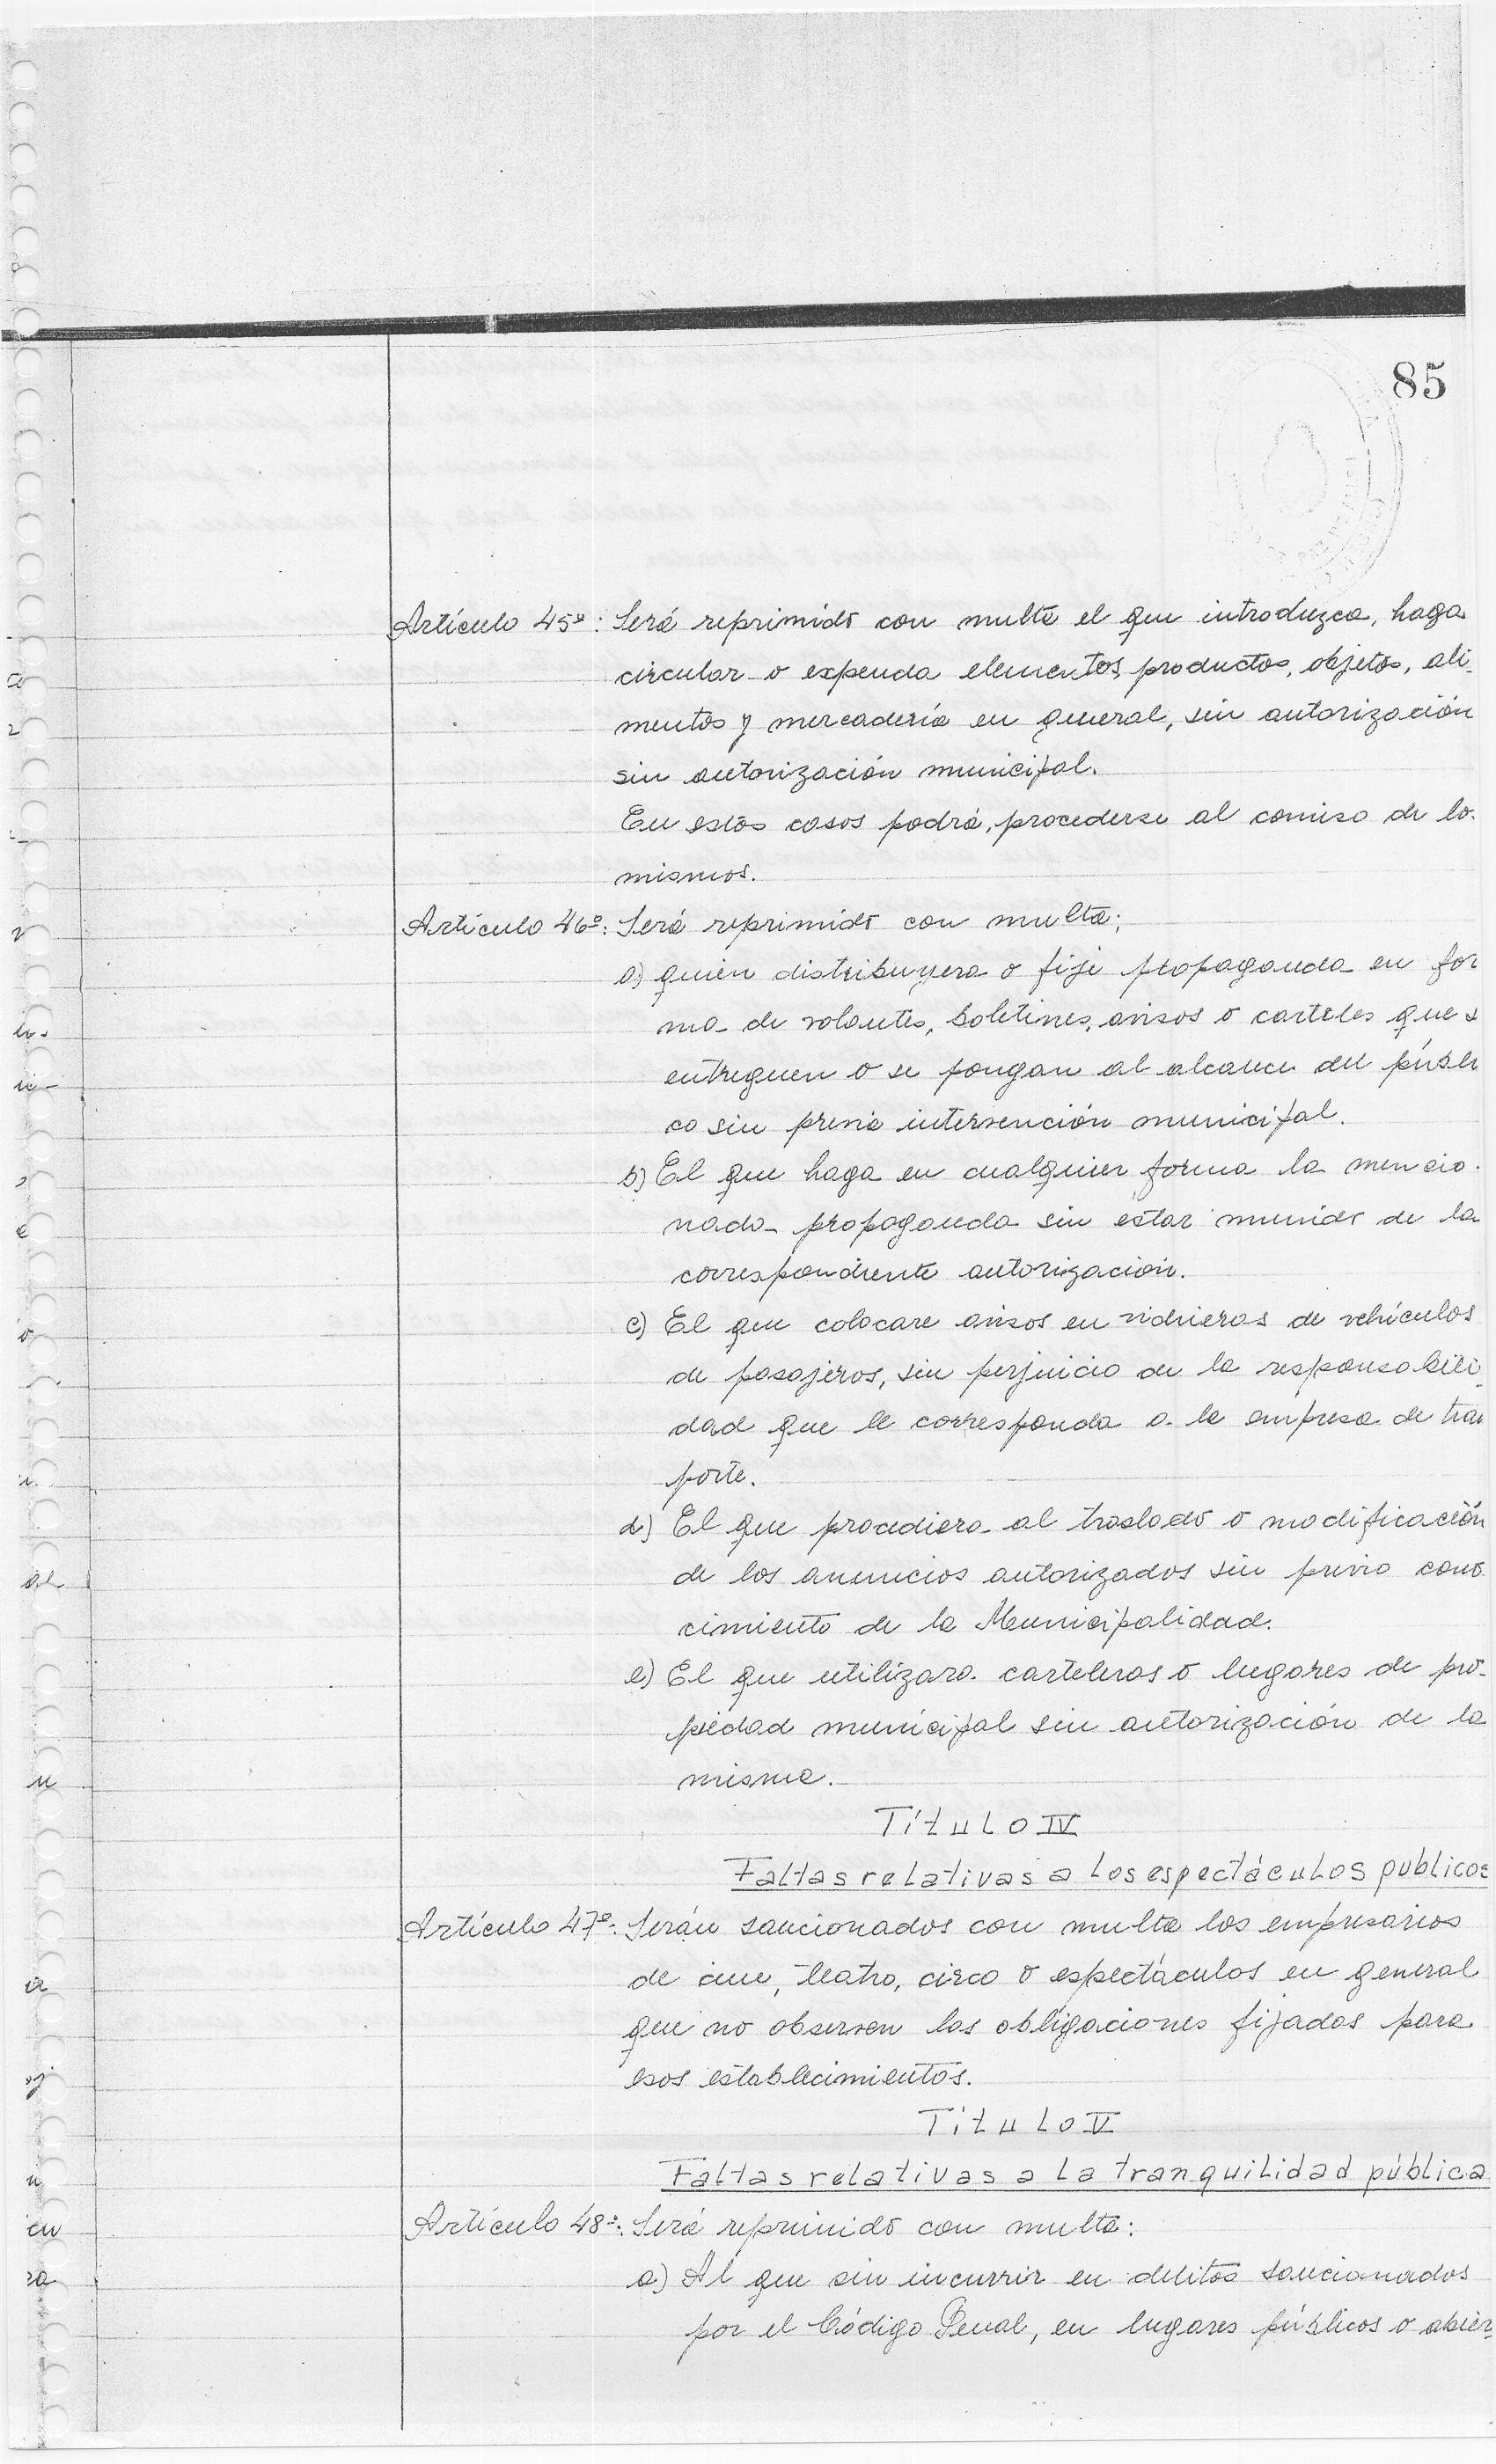 85
Artículo 45º: Será reprimido con multa el que introduzca, haga
circular o expenda elementos, productos, objetos, ali-
mentos y mercadería en general, sin autorización
sin autorización municipal.
En estos casos podrá, procederse al comiso de lo.
mismos.
Artículo 46º: Será reprimido con multa;
a) quien distribuyera o fije propaganda en for
ma de volantes, boletines, avisos o carteles que s
entreguen o se pongan al alcance del públi
co sin previa intervención municipal.
b) El que haga en cualquier forma la mencio-
nada propaganda sin estar munido de la
correspondiente autorización.
c) El que colocare avisos en vidrieras de vehículos
de pasajeros, sin perjuicio de la responsabili-
dad que le corresponda a la empresa de tra
porte.
d) El que procediera al traslado o modificación
de los anuncios autorizados sin previo cono
cimiento de la Municipalidad.
e) El que utilizara carteleras o lugares de pro-
piedad municipal sin autorización de la
misma.
Título IV
Faltas relativas a los espectáculos publicos
Artículo 47º: Serán sancionados con multa los empresarios
de cine, teatro, circo o espectáculos en general
que no observen las obligaciones fijadas para
esos establecimientos.
Título V
Faltas relativas a la tranquilidad pública
Artículo 48º: Será reprimido con multa:
a) Al que sin incurrir en delitos sancionados
por el Código Penal, en lugares públicos o abier-